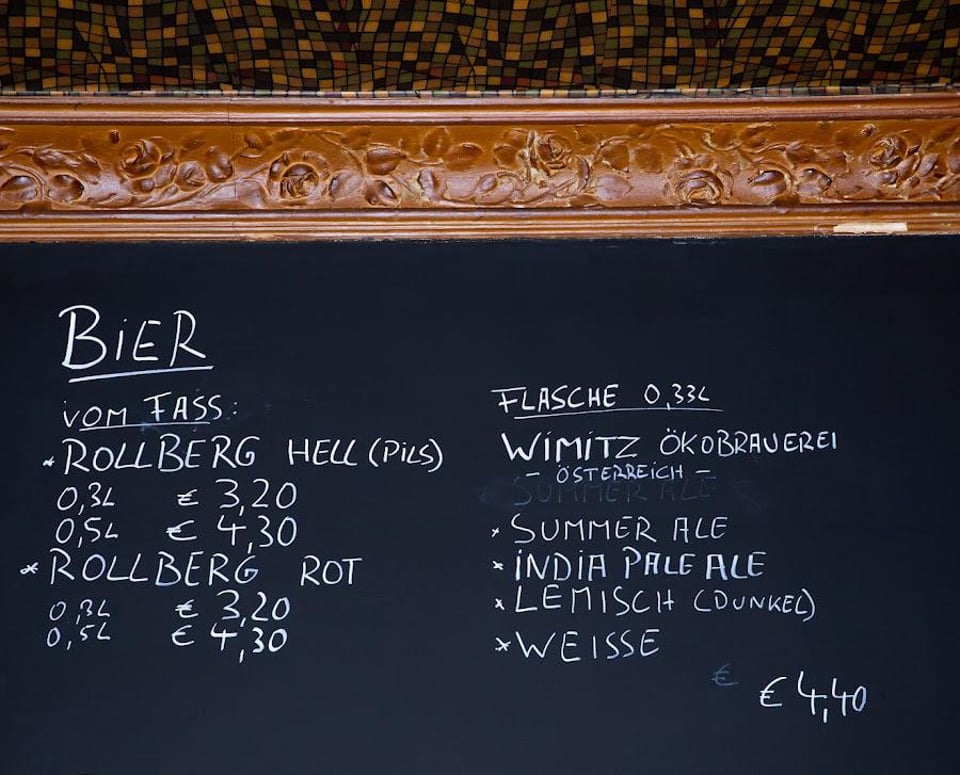 BiER
VOM FASS:
* ROLLBERG HELL (PiLS)
0,3L € 3,20
0,5L € 4,30
* ROLLBERG ROT
0,3L € 3,20
0,5L € 4,30
FLASCHE 0,33L
WiMiTZ ÖKOBRAUEREI
- ÖSTERREiCH -
SUMMER ALE €
* SUMMER ALE
* iNDiA PALE ALE
* LEMISCH (DUNKEL)
* WEISSE
€
€ 4,40